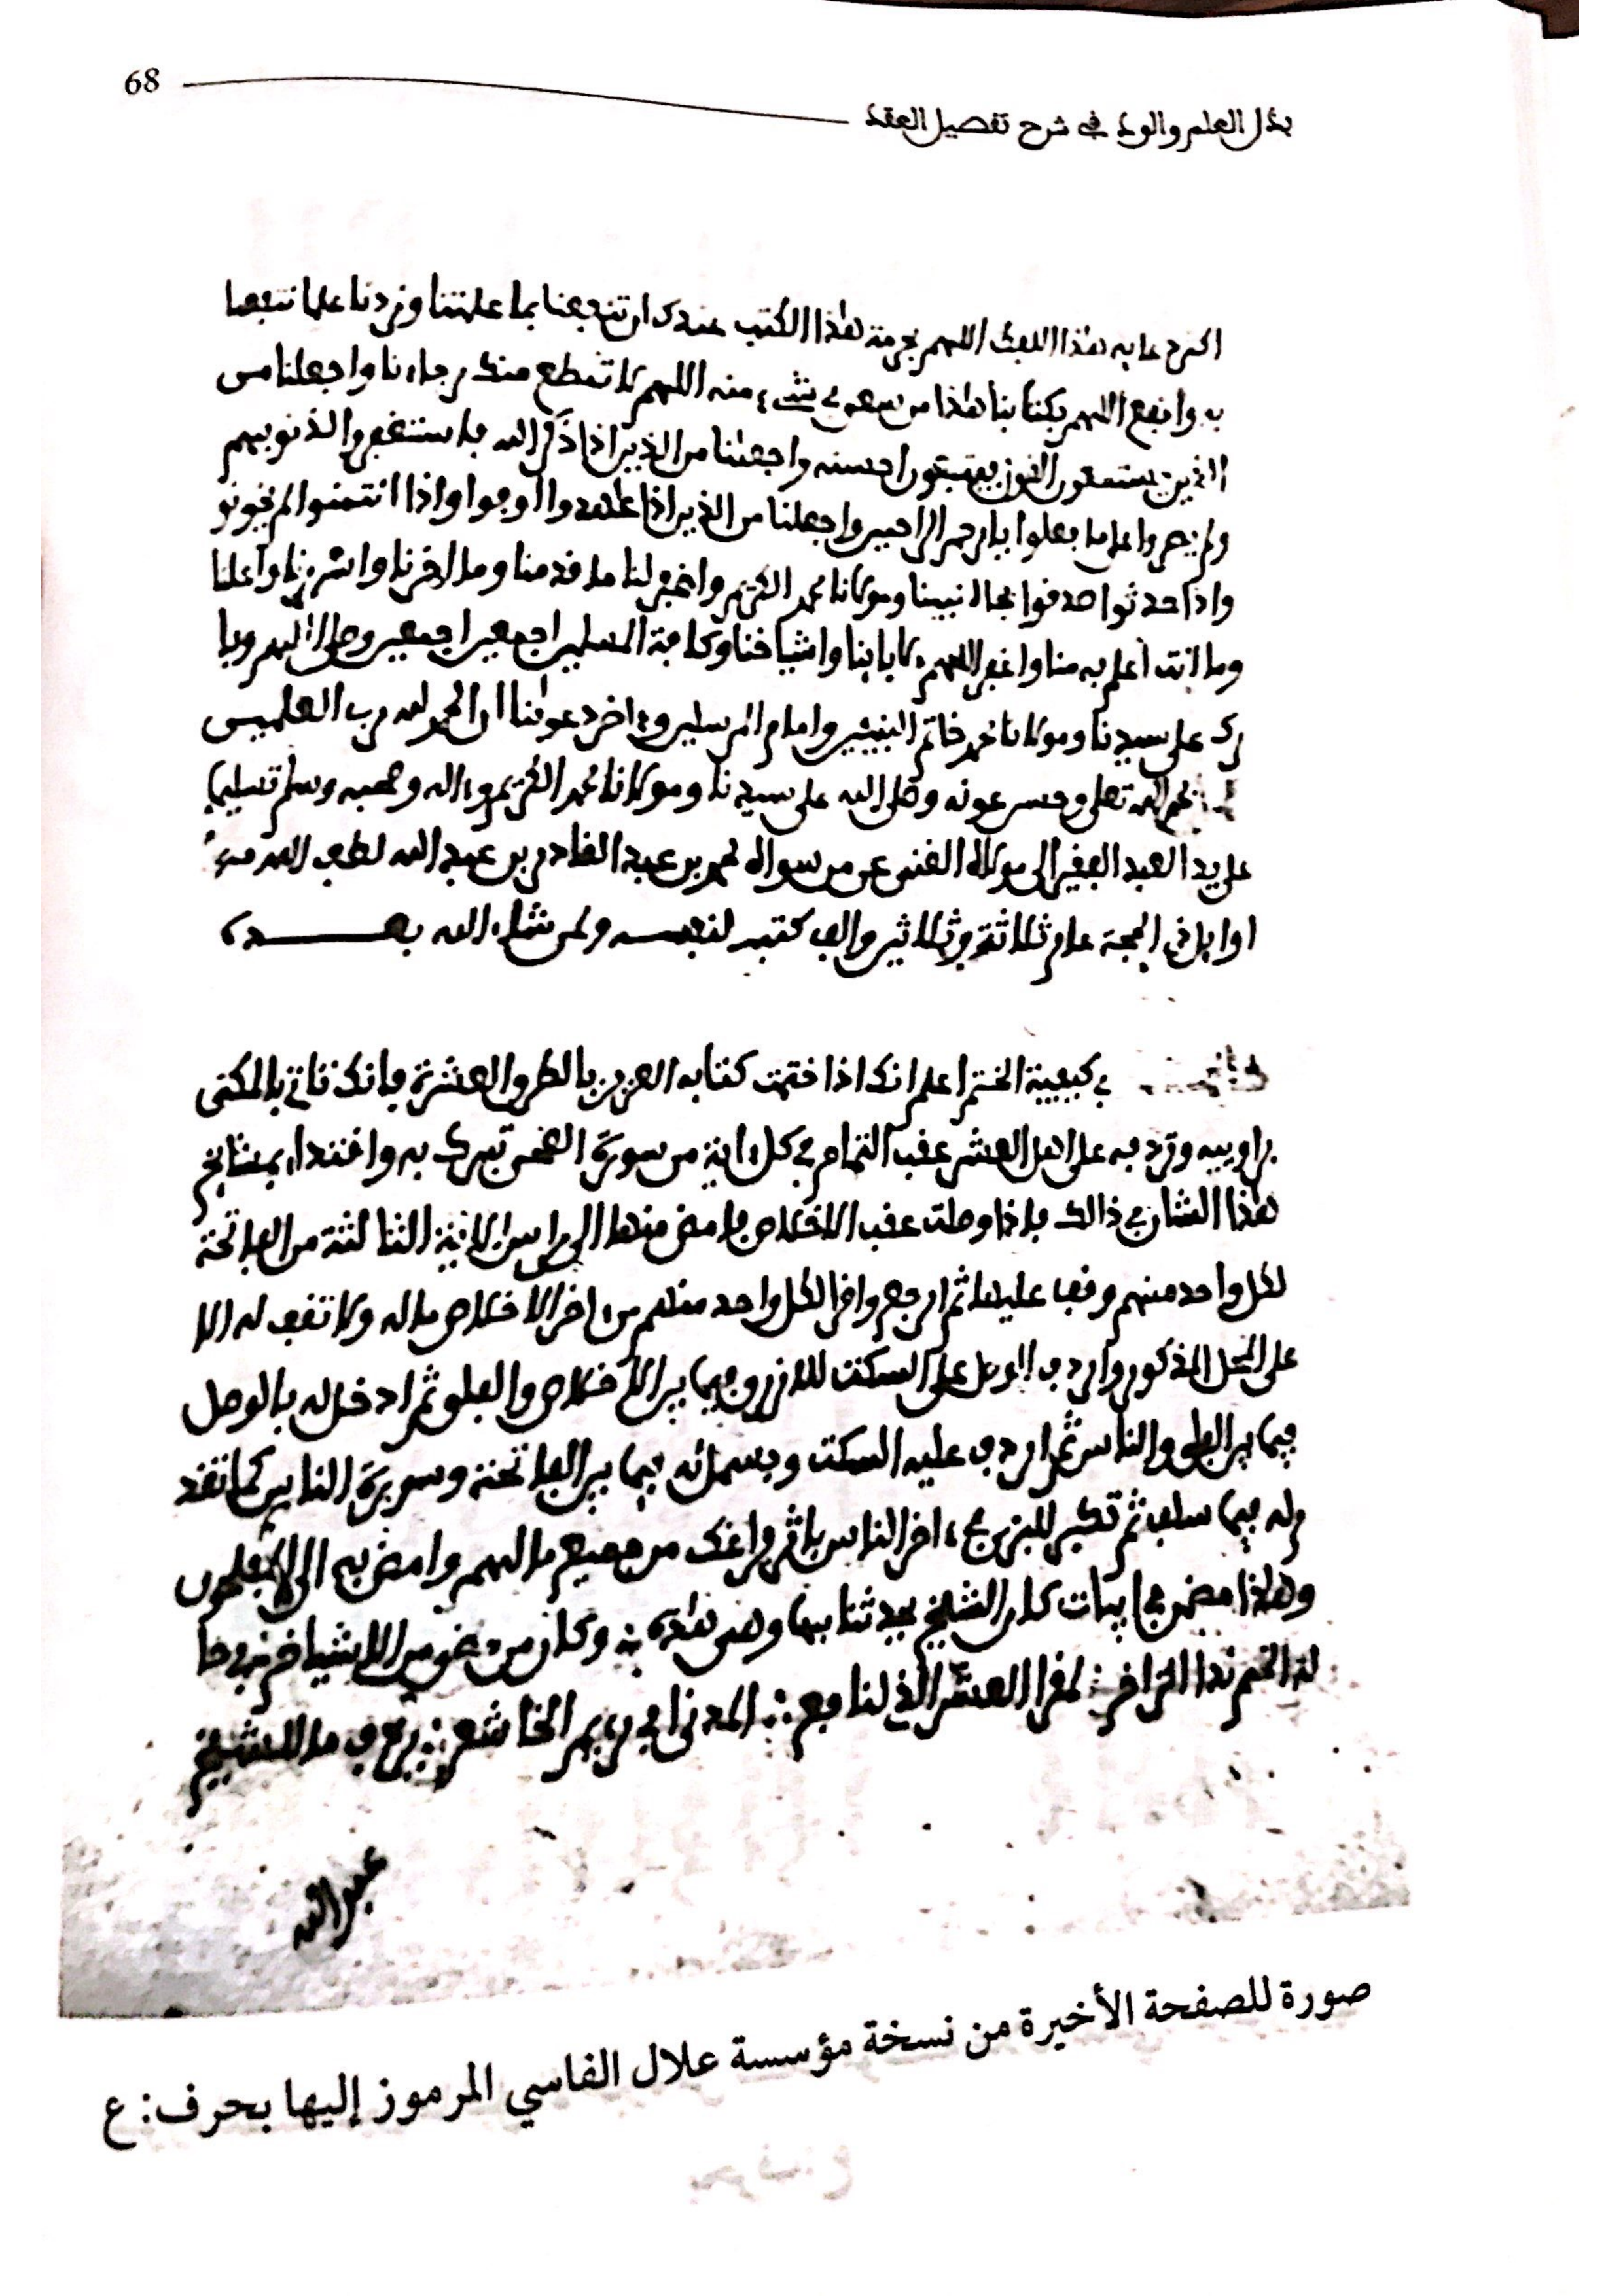 68
بذل العلم والود في شرح تفصيل العقد
هذا اللهم بحرمة هذا الكتب عندك ان تنفعنا بما علمتنا وزدنا علما تنفعنا
به وانفع اللهم بكتابنا هذا من سعى في شيء منه اللهم لا تقطع منك رجاءنا واجعلنا من
الذين يستمعون القول فيتبعون احسنه واجعلنا من الذين اذا ذكر الله فاستغفروا لذنوبهم
ولم يصروا على ما فعلوا يا ارحم الراحمين واجعلنا من الذين اذا عاهدوا اوفوا واذا ائتمنوا لم يخونو
واذا حدثوا صدقوا بجاه نبينا ومولانا محمد الكريم واغفر لنا ما قدمنا وما اخرنا واسررنا واعلنا
وما انت اعلم به منا واغفر اللهم لابائنا واشياخنا وكافة المسلمين اجمعين اجمعين وصل اللهم وبا
رك على سيدنا ومولانا محمد خاتم النبيئين وامام المرسلين وءاخر دعوىنا ان الحمد لله رب العلمين
بحمد الله تعلى وحسن عونه وصلى الله على سيدنا ومولانا محمد الكريم وءاله وصحبه وسلم تسليما
على يد العبد الفقير الى مولاه الغني عمن سواه محمد بن عبد القادر بن عبد الله لطف الله به
اوايل ذي الحجة عام ثلاثة وثلاثين والف كتبه لنفسه ولمن شاء الله بعده
في كيفية الختم اعلم انك اذا ختمت كتابه العزيز بالطرق العشرية فانك تاتي بالمكي
براوييه وتردفه على اهل العشر عقب التمام في كل ءاية من سورة الضحى تبرك به واقتداء بمشايخ
هذا الشان في ذالك فاذا وصلت عقب الاخلاص فامض منها الى راس الاية الثالثة من الفاتحة
لكل واحد منهم وقفا عليها ثم ارجع واقرا لكل واحد منهم من ءاخر الاخلاص ماله ولا تقف له الا
على المحل المذكور واردف الوصل على السكت للازرق فيما بين الاخلاص والفلق ثم ادخل له بالوصل
فيما بين الفلق والناس ثم اردف عليه السكت وبسملته فيما بين الفاتحة وسورة الناس كما تقد
م له فيما سلف ثم تكبر للبزي في ءاخر الناس باثر فراغك من جميع مالهم وامض به الى المفلحون
وهذا مضمن في ابيات كان الشيخ يحدثنا بها وهي هذه وكان من نحو من الاشياخ في حا
لة الختم تدا لمقرا العشر الذي لنافع المدني الخاشع يردف ما للشيخ
عبد الله
صورة للصفحة الأخيرة من نسخة مؤسسة علال الفاسي المرموز إليها بحرف: ع